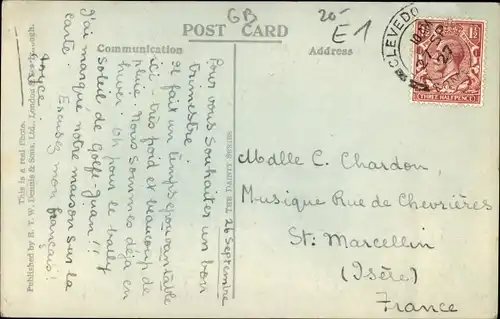 GB
20-
E1
POST CARD
Communication
Address
CLEVEDON
27
THREE HALFPENCE
This is a real Photo.
Published by E. T. W. Dennis & Sons, Ltd., London & Scarborough.
THE DAINTY SERIES
26 Septembre
Pour vous souhaiter un bon
trimestre.
Il fait un temps épouvantable
ici - très froid et beaucoup de
pluie. Nous sommes déjà en
hiver. Oh pour le
soleil de Golfe-Juan!!
J'ai marqué notre maison sur la
carte. Excusez mon français!
Joyce.
Mdlle C. Chardon,
Musique Rue de Chevrières
St. Marcellin
(Isère)
France